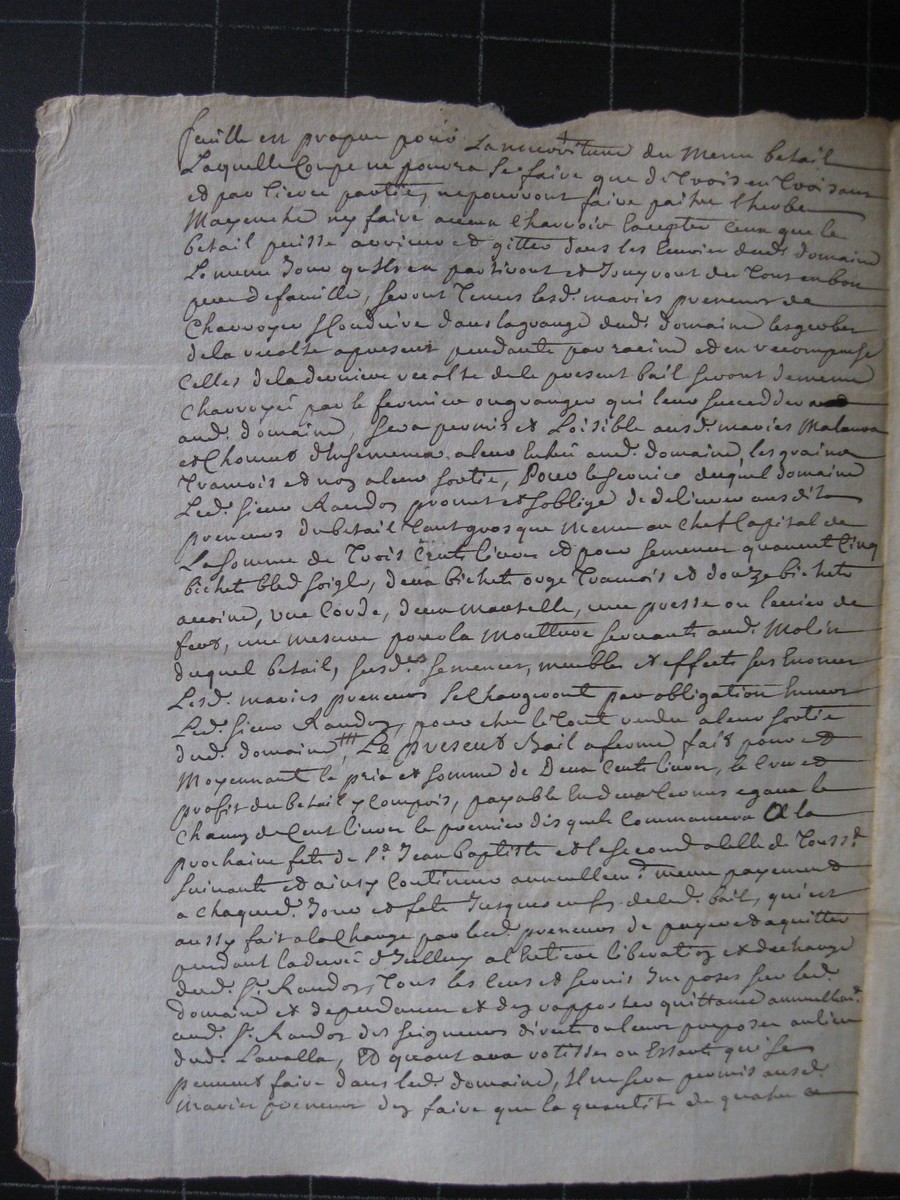 feuille est propre pour La nourriture du Menu betail
Laquelle Coupe ne pourra Se faire que de trois en trois ans
et par tierce partie, ne pourront faire paitre l'herbe
ny faire aucun Charroir Excepter Ceux que le
betail puisse arriere et gitter dans les Ecurier dud. domaine
Le meme Jour quils en partiront et Jouyront du Tout en bon
pere de famille, seront Tenus lesd. mariés preneurs de
Charroyer dans la grange dud. domaine les gerbes
de la recolte a present pendante par racine et en recompense
Celles de la derniere recolte de le present bail seront de meme
Charroyée par le fermier ou granger qui leur succedera
aud. domaine, sera permis et Loisible ausd. mariés
a leur aud. domaine, les grains
Tramois et noz a leur sortie, Pour le service duquel domaine
Led. sieur Randoz promet et soblige de delivrer ausdits
preneurs du betail Tant gros que Menu au Chef Capital de
La somme de Trois Cents livres et pour semener quarent Cinq
bichets bled soigle, deux bichets orge Tramois et douze bichets
avoine, une Corde, deux Martelle, une presse ou levier de
fert, une mesure pour la Moulture servante aud. Molin
duquel betail, susd.es semences, meubles et effects sus Enoncer
Lesd. mariés preneurs Se Chargeront par obligation Envers
Led. sieur Randoz, pour etre le Tout rendu a leur sortie
dud. domaine, Le present Bail a ferme fait pour et
Moyennant le prix et somme de Deux Cents livres, le Cru et
profit du betail y Compris, payable En deux Termes egaux le
Chacun de Cent livres le premier disquels Commancera A la
prochaine fete de St. Jean Baptiste et le second a Celle de Touss.t
suivante et ainsy Continuer annuellem.t meme payement
a chaque d. Jour et fete Jusques en fin de led. bail, qui est
aussy fait a la Charge par lesd. preneurs de payer et aquitter
pendant la durée d'Icelluy a l'Entiere liberation et decharge
dud. Sr. Randoz, Tous les Cens et servis Imposés sur led.
domaine et dependance et dez rapporter quittance annuellem.t
aud. Sr. Randoz des seigneurs directs ou leurs preposer au lieu
dud. Lavalla, Et quant aux rotisses ou Essarts qui se
peuvent faire dans led. domaine, Il ne sera permis ausd.
Mariés preneurs dez faire que la quantité de quatre